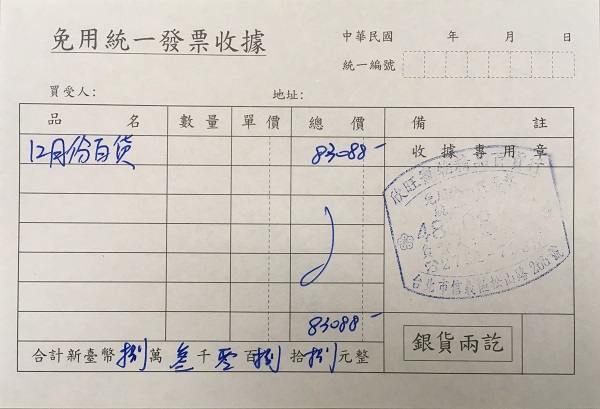 免用統一發票收據
中華民國 年 月 日
統一編號
買受人: 地址:
品 名 數量 單價 總 價 備 註
12月份百货 83088- 收據專用章
欣旺
48
台北市信義區松山路265號
83088-
合計新臺幣捌萬叁千零百捌拾捌元整
銀貨兩訖